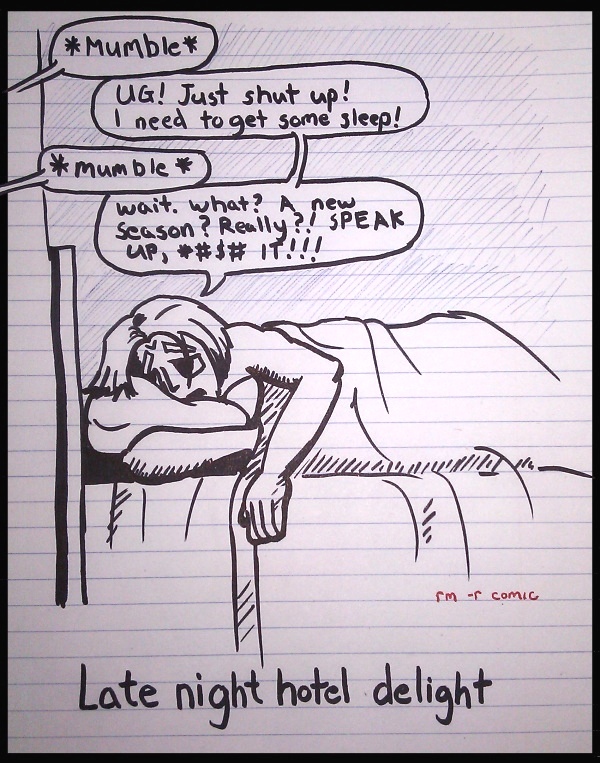 *Mumble*
UG! Just shut up!
I need to get some sleep!
*mumble*
wait. what? A new
season? Really?! SPEAK
UP, *#$# IT!!!
rm -r comic
Late night hotel delight